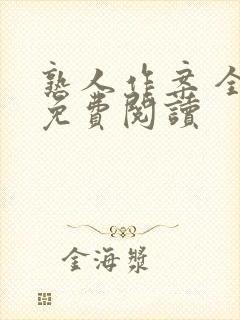 熟人作案全
免費閱讀
金海漿